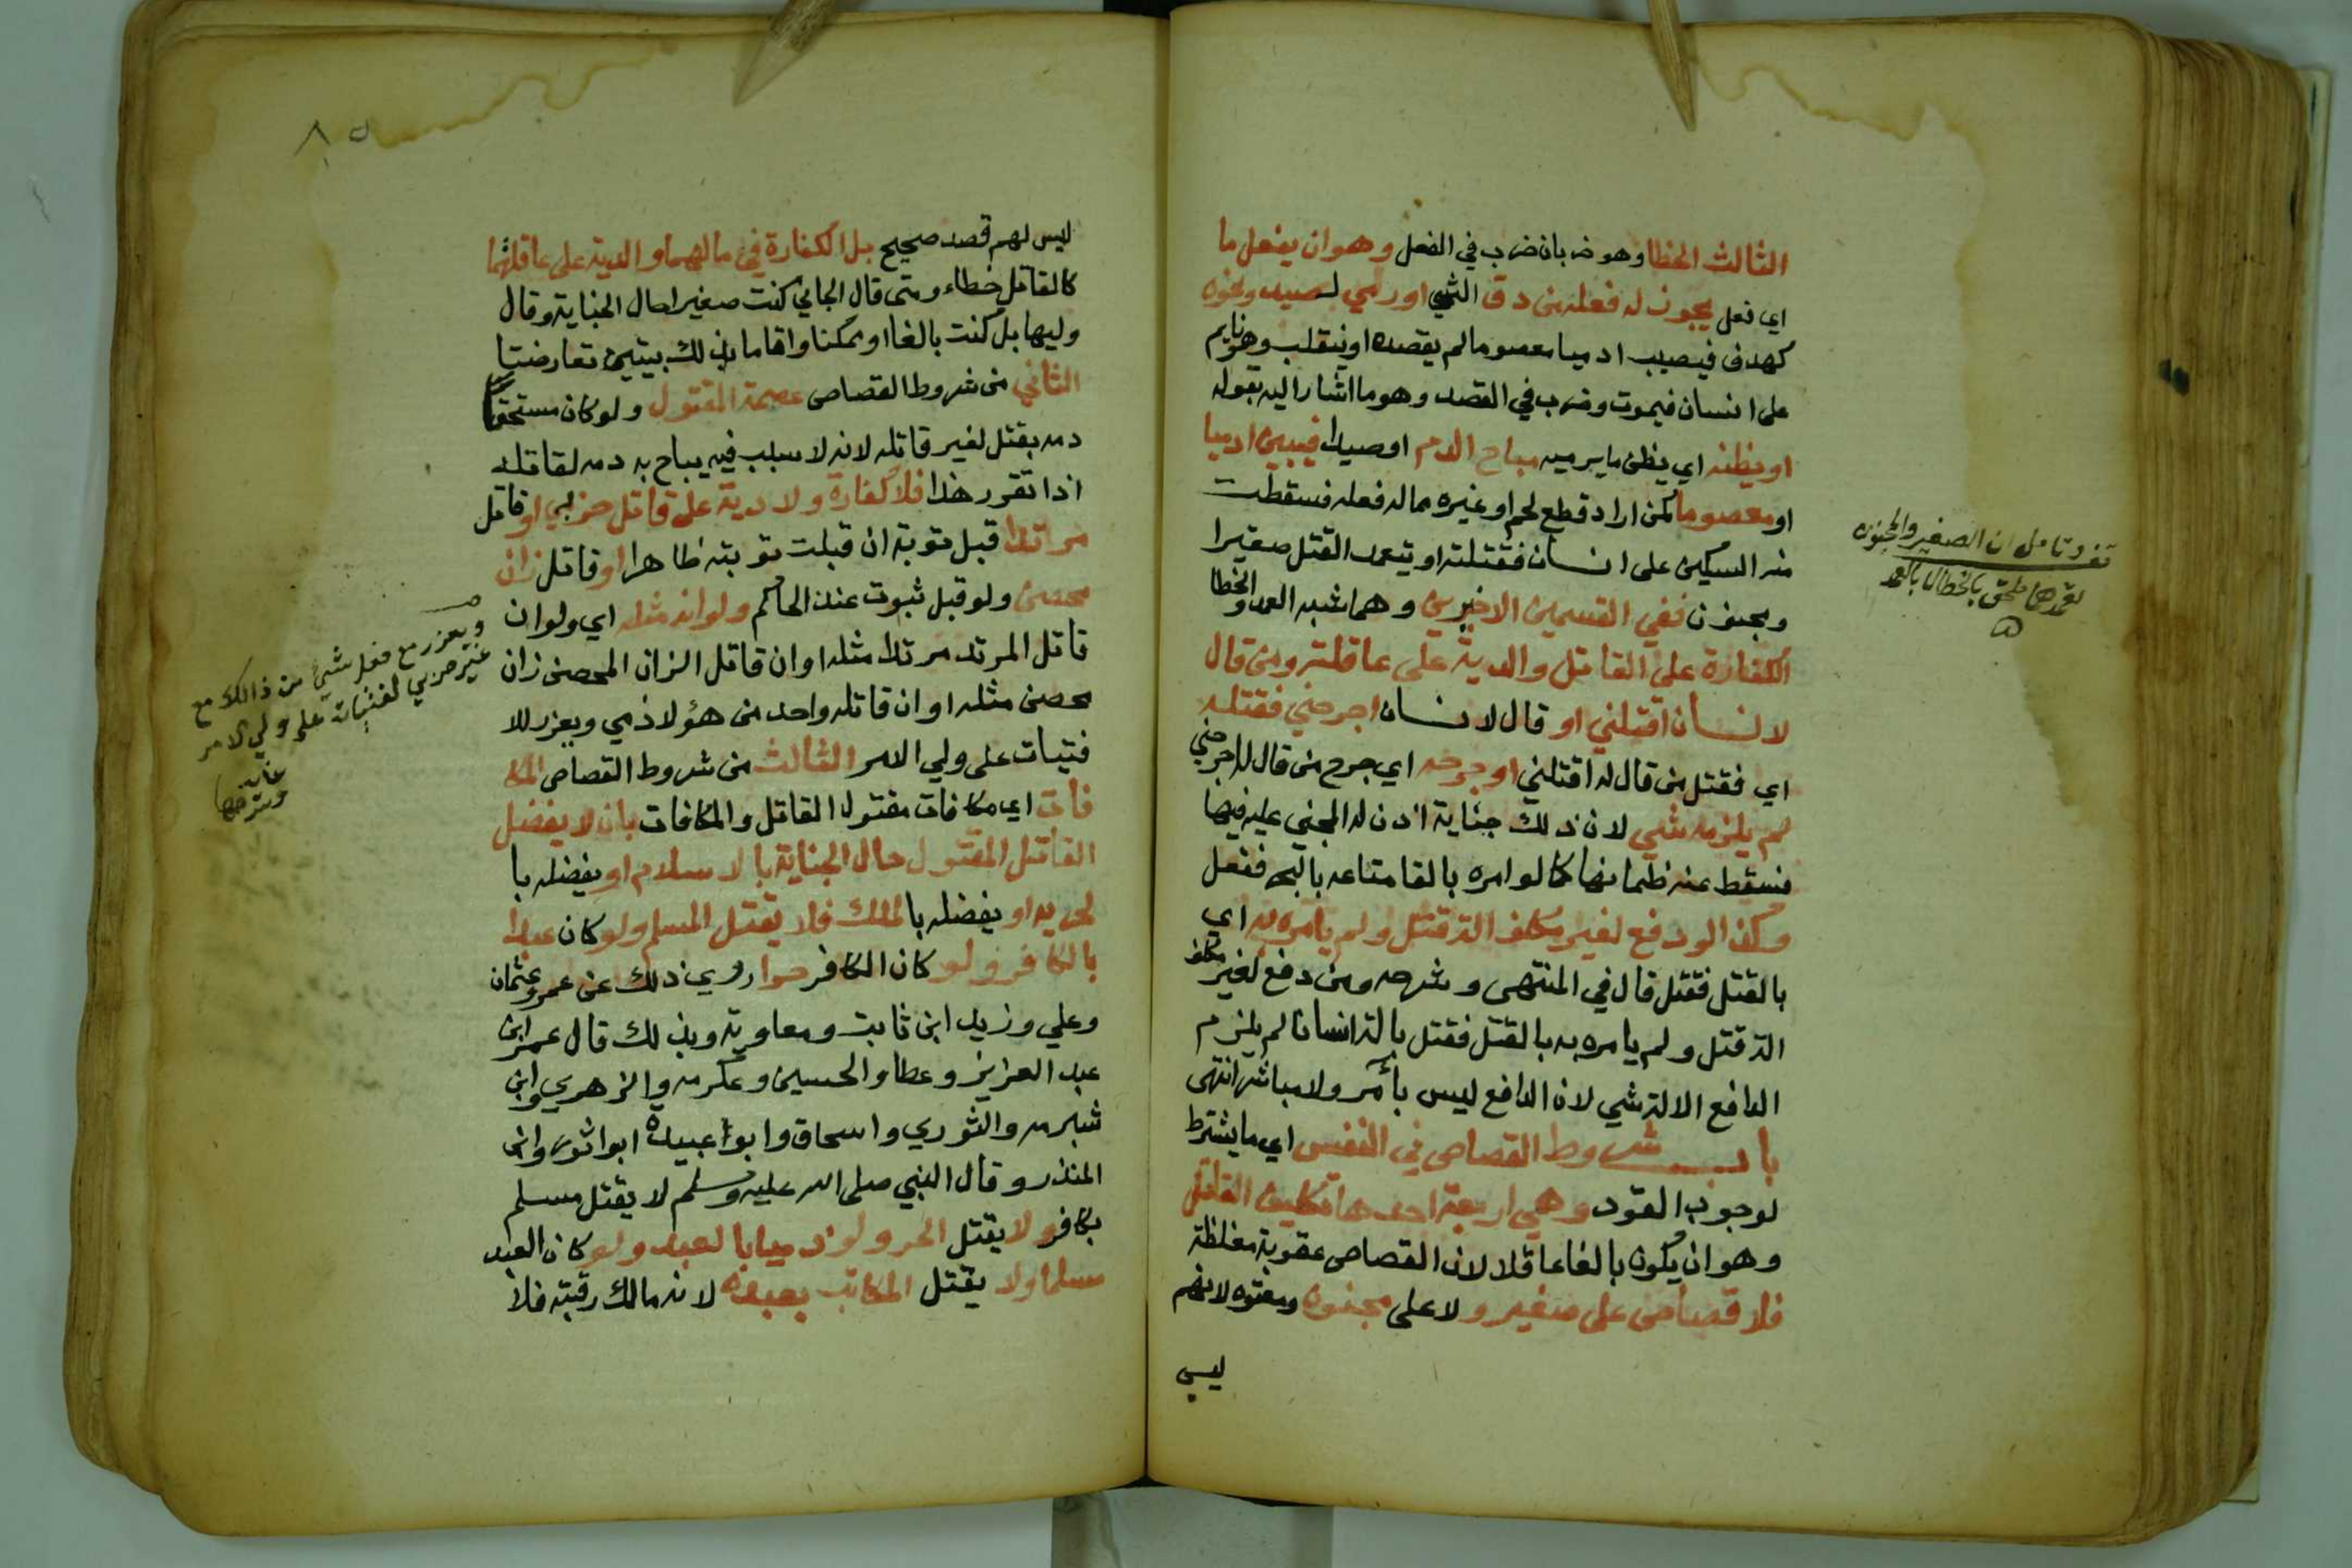 الثالث الخطا وهو ضربان ضرب في الفعل وهو ان يفعل ما
اي فعل يجوز له فعله من دق الشي او رمي لصيد ونحوه
كهدف فيصيب ادميا معصوما لم يقصده او ينقلب وهو نايم
على انسان فيموت وضرب في القصد وهو ما اشار اليه بقوله
او يظنه اي يظن ما يرميه مباح الدم او صيدا فيبين ادميا
او معصوما كمن اراد قطع لحم او غيره مما له فعله فسقطت
منه السكين على انسان فقتلته او يتعمد القتل صغيرا
ومجنون ففي القسمين الاخيرين وهما شبه العمد والخطا
الكفارة على القاتل والدية على عاقلته ومن قال
لانسان اقتلني او قال لانسان اجرحني فقتله
اي فقتل من قال له اقتلني او جرحه اي جرح من قال له اجرحني
لم يلزمه شي لان ذلك جناية اذن له المجني عليه فيها
فسقط عنه ضمانها كما لو امره بالقا متاعه بالبحر ففعل
وكذا لو دفع لغير مكلف الة قتل ولم يامره به اي
بالقتل فقتل قال في المنتهى وشرحه ومن دفع لغير مكلف
الة قتل ولم يامره به بالقتل فقتل بالة انسانا لم يلزم
الدافع الالة شي لان الدافع ليس بآمر ولا مباشر انتهى
باب شروط القصاص في النفس اي ما يشترط
لوجوب القود وهي اربعة احدها تكليف القاتل
وهو ان يكون بالغا عاقلا لان القصاص عقوبة مغلظة
فلا قصاص على صغير ولا على مجنون ومعتوه لانهم
ليس
تعمدهما ملحق بالخطا لا بالعمد
ليس لهم قصد صحيح بل الكفارة في مالهما والدية على عاقلتهما
كالقاتل خطاء ومتى قال الجاني كنت صغيرا حال الجناية وقال
وليها بل كنت بالغا او مكنا واقاما بذلك بينتين تعارضتا
الثاني من شروط القصاص عصمة المقتول ولو كان مستحقا
دمه بقتل لغير قاتله لانه لا سبب فيه يباح به دمه لقاتله
اذا تقرر هذا فلا كفارة ولا دية على قاتل حربي او قاتل
مرتدا قبل توبة ان قبلت توبته ظاهرا او قاتل زان
محصن ولو قبل ثبوت عند الحاكم ولو انه مثله اي ولو ان
قاتل المرتد مرتدا مثله او ان قاتل الزان المحصن زان
محصن مثله او ان قاتله واحد من هؤلا ذمي ويعزر للا
فتيات على ولي الامر الثالث من شروط القصاص المكا
فات اي مكافات مقتول القاتل والمكافات بان لا يفضل
القاتل المقتول حال الجناية بالاسلام او يفضله با
لحريه او يفضله بالملك فلا يقتل المسلم ولو كان عبدا
بالكافر ولو كان الكافر حرا روي ذلك عن عمر وعثمان
وعلي وزيد ابن ثابت ومعاوية وبذلك قال عمر ابن
عبد العزيز وعطا والحسين وعكرمه والزهري وابن
شبرمه والثوري واسحاق وابوا عبيدة ابوا ثور وابن
المنذر وقال النبي صلى الله عليه وسلم لا يقتل مسلم
بكافر ولا يقتل الحر ولو ذميا بالعبد ولو كان العبد
مسلما ولا يقتل المكاتب بعبده لانه مالك رقبته فلا
ويعزر مع فعل شيئ من ذالك مع
غير حربي لفتيات على ولي الامر
غايه
وشرحها